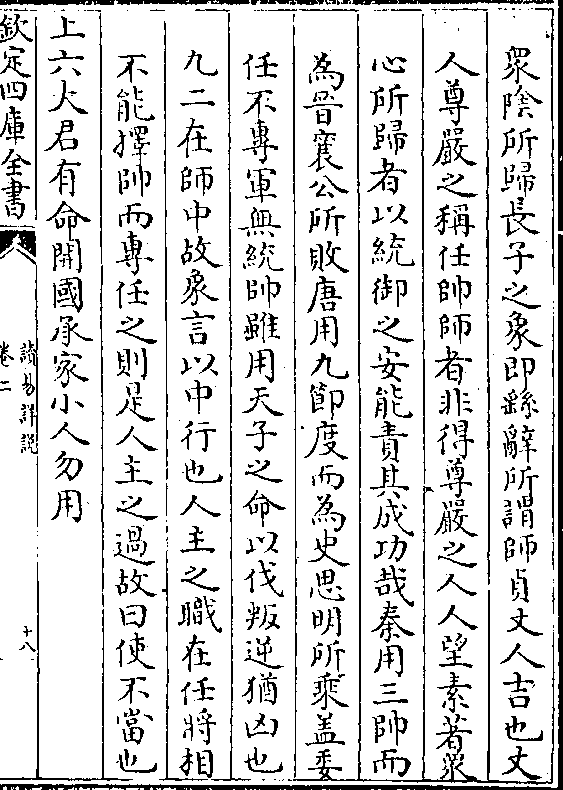 衆陰所歸長子之象即繇辭所謂師貞丈人吉也丈
人尊嚴之稱任帥師者非得尊嚴之人人望素著衆
心所歸者以統御之安能責其成功哉秦用三帥而
為晉襄公所敗唐用九節度而為史思明所乘盖委
任不專軍無統帥雖用天子之命以伐叛逆猶凶也
九二在師中故彖言以中行也人主之職在任將相
不能擇帥而專任之則是人主之過故曰使不當也
上六大君有命開國承家小人勿用
欽定四庫全書
讀易詳說
卷二
十八